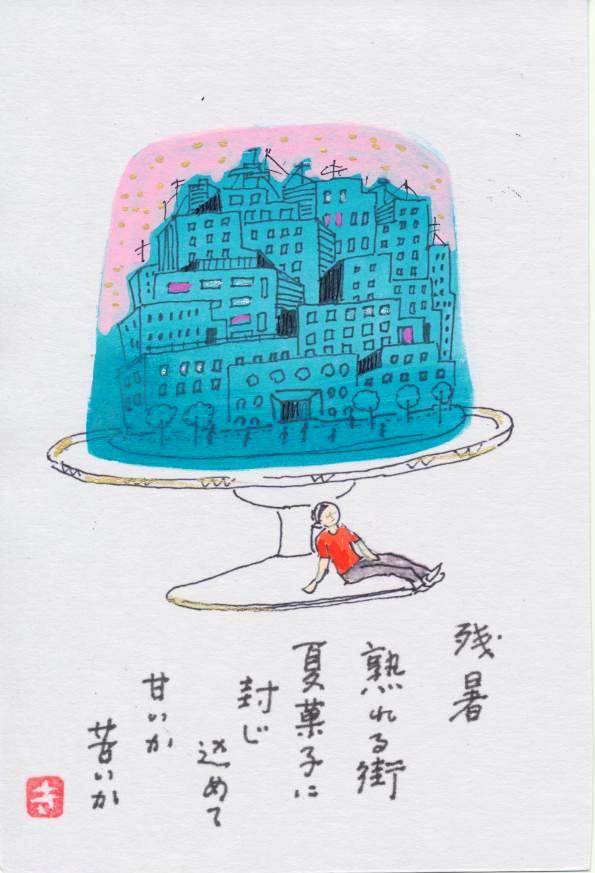 残暑
熟れる街
夏菓子に
封じ
込めて
甘いか
苦いか
寺